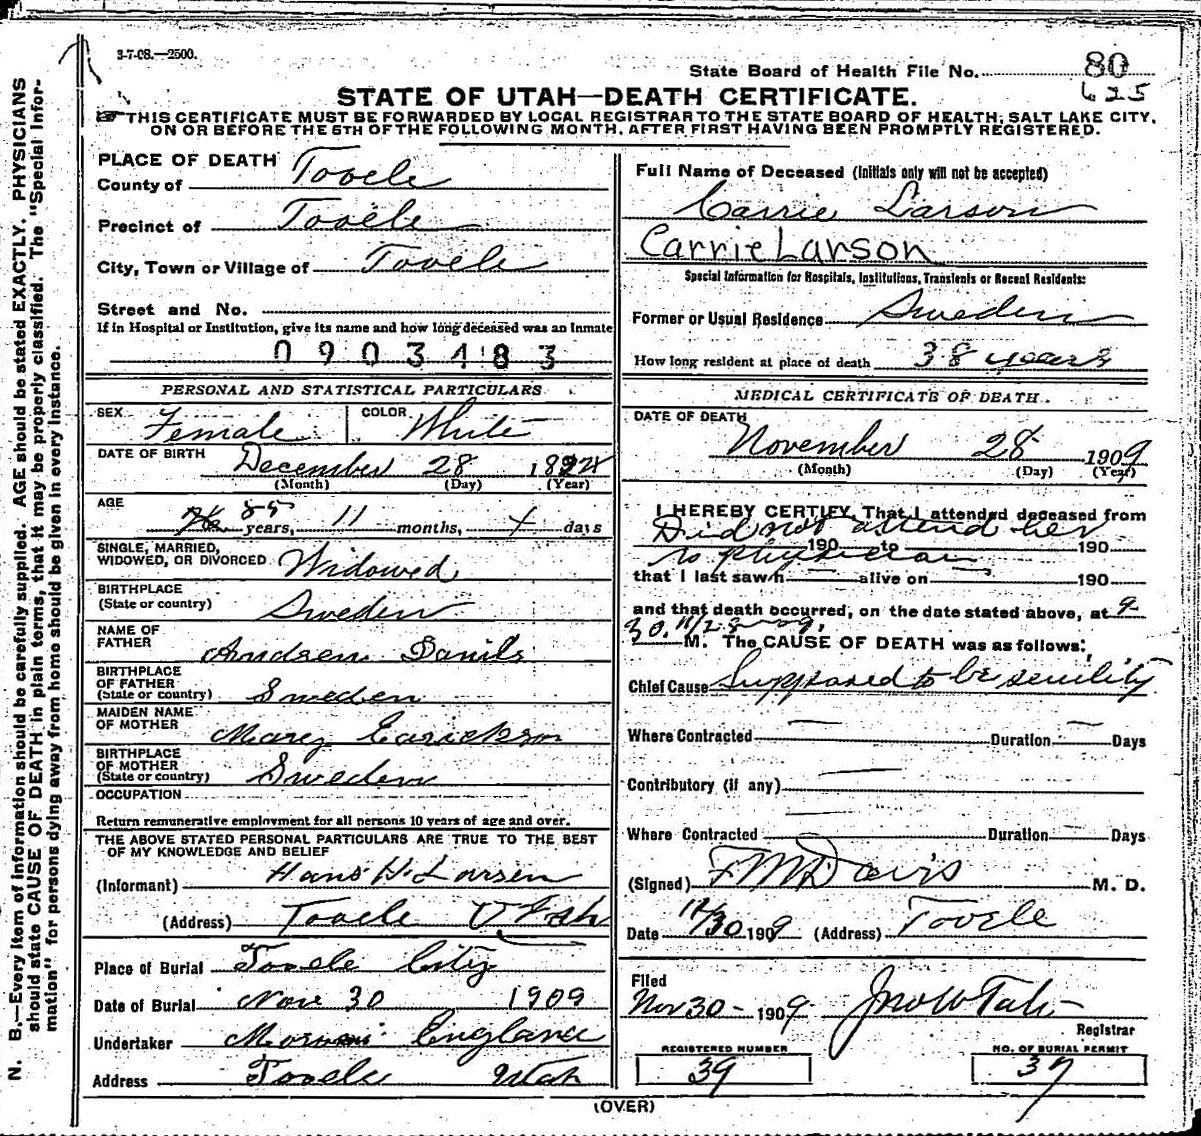 3-7-08.—2500.
State Board of Health File No. 80
625
STATE OF UTAH—DEATH CERTIFICATE.
THIS CERTIFICATE MUST BE FORWARDED BY LOCAL REGISTRAR TO THE STATE BOARD OF HEALTH, SALT LAKE CITY,
ON OR BEFORE THE 5TH OF THE FOLLOWING MONTH, AFTER FIRST HAVING BEEN PROMPTLY REGISTERED.
N. B.—Every item of information should be carefully supplied. AGE should be stated EXACTLY. PHYSICIANS
should state CAUSE OF DEATH in plain terms, that it may be properly classified. The "Special Infor-
mation" for persons dying away from home should be given in every instance.
PLACE OF DEATH
County of Tooele
Precinct of Tooele
City, Town or Village of Tooele
Street and No.
If in Hospital or Institution, give its name and how long deceased was an inmate
0903483
PERSONAL AND STATISTICAL PARTICULARS
SEX Female COLOR White
DATE OF BIRTH December 28 18
(Month) (Day) (Year)
AGE 85 years, 11 months, days
SINGLE, MARRIED,
WIDOWED, OR DIVORCED Widowed
BIRTHPLACE
(State or country) Sweden
NAME OF
FATHER Andrew Danils
BIRTHPLACE
OF FATHER
(State or country) Sweden
MAIDEN NAME
OF MOTHER Mary Earickson
BIRTHPLACE
OF MOTHER
(State or country) Sweden
OCCUPATION
Return remunerative employment for all persons 10 years of age and over.
THE ABOVE STATED PERSONAL PARTICULARS ARE TRUE TO THE BEST
OF MY KNOWLEDGE AND BELIEF
(Informant) Hans H. Larsen
(Address) Tooele Utah
Place of Burial Tooele City
Date of Burial Nov 30 1909
Undertaker England
Address Tooele Utah
Full Name of Deceased (Initials only will not be accepted)
Carrie Larson
Carrie Larson
Special Information for Hospitals, Institutions, Transients or Recent Residents:
Former or Usual Residence Sweden
How long resident at place of death 38 years
MEDICAL CERTIFICATE OF DEATH.
DATE OF DEATH
November 28 1909
(Month) (Day) (Year)
I HEREBY CERTIFY, That I attended deceased from
Did not attend her
190 to 190
no physician
that I last saw h alive on 190
and that death occurred, on the date stated above, at 9
30 M. The CAUSE OF DEATH was as follows:
Chief Cause Supposed to be senility
Where Contracted Duration Days
Contributory (if any)
Where Contracted Duration Days
(Signed) F M Davis M. D.
Date 11/30 1909 (Address) Tooele
Filed
Nov 30 - 1909 Jno W Tate
Registrar
REGISTERED NUMBER
39
NO. OF BURIAL PERMIT
37
(OVER)